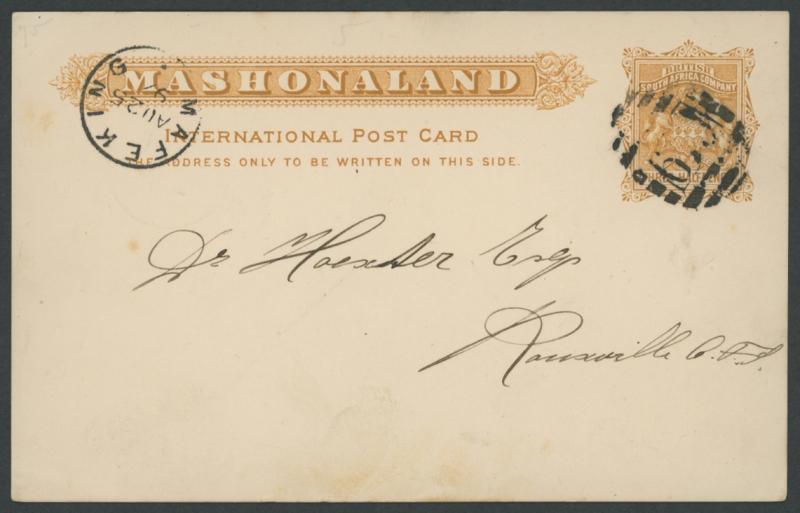 MASHONALAND
INTERNATIONAL POST CARD
THE ADDRESS ONLY TO BE WRITTEN ON THIS SIDE.
MAFEKING
AU 25
BRITISH
SOUTH AFRICA COMPANY
Dr Hoexter Esqr
Rouxville O.F.S.